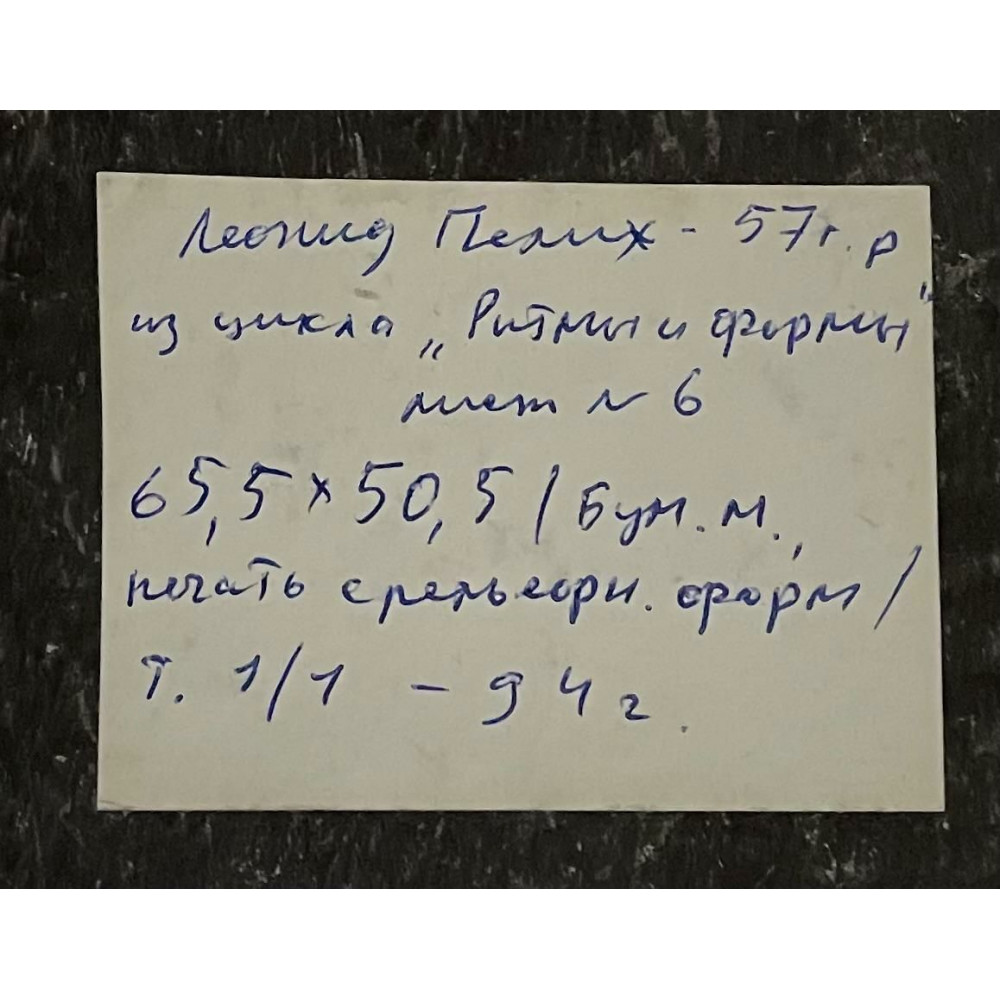 Леонид Пелих - 57 г. р
из цикла „Ритмы и формы"
лист N 6
65,5 × 50,5 / Бум. м.,
печать с рельефн. форм /
т. 1/1 - 94 г.